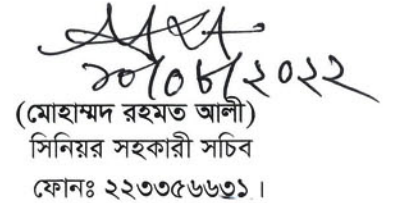 (মোহাম্মদ রহমত আলী)
সিনিয়র সহকারী সচিব
ফোনঃ ২২৩৩৫৬৬৩১ ।